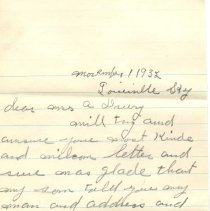 november 1 1932
Louisville Ky
dear mrs a Drury
will try and
answer your most kinde
and wilcom letter and
sure was glade that
my son told you my
nam and address and